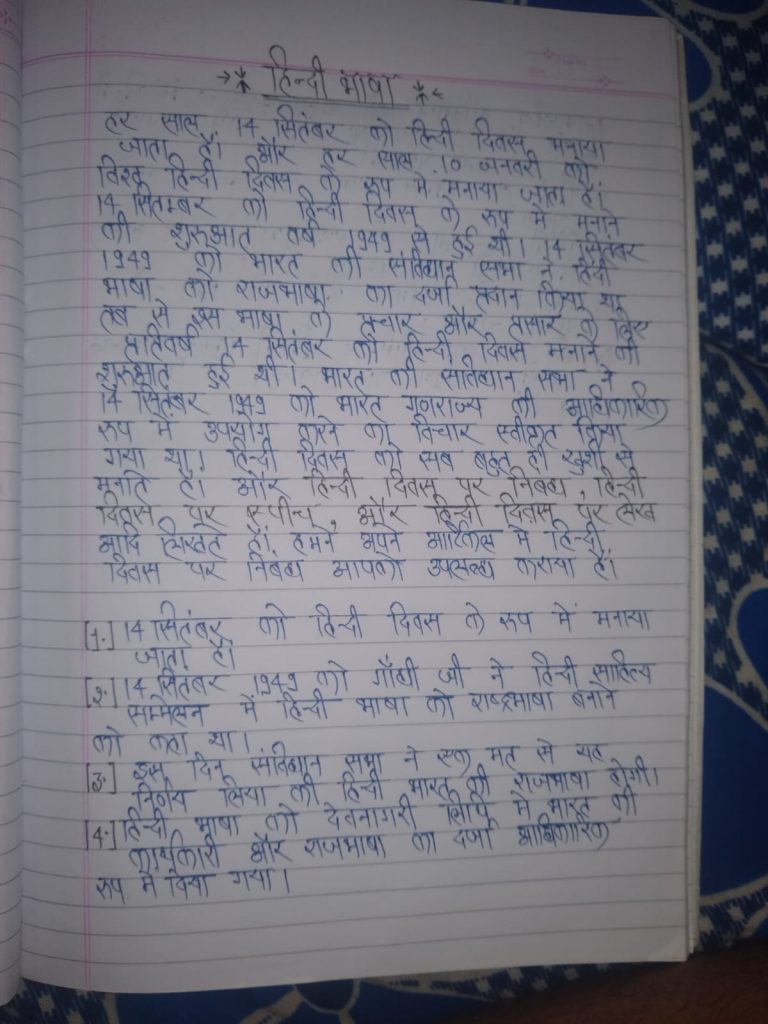 हिन्दी भाषा
हर साल 14 सितंबर को हिन्दी दिवस मनाया
जाता है। और हर साल 10 जनवरी को
विश्व हिन्दी दिवस के रूप में मनाया जाता है।
14 सितम्बर को हिन्दी दिवस के रूप में मनाने
की शुरुआत वर्ष 1949 से हुई थी। 14 सितंबर
1949 को भारत की संविधान सभा ने हिन्दी
भाषा को राजभाषा का दर्जा प्रदान किया था
तब से इस भाषा के प्रचार और प्रसार के लिए
प्रतिवर्ष 14 सितंबर को हिन्दी दिवस मनाने की
शुरुआत हुई थी। भारत की संविधान सभा ने
14 सितंबर 1949 को भारत गणराज्य की आधिकारिक
रूप में उपयोग करने का विचार स्वीकृत किया
गया था। हिन्दी दिवस को सब बहुत ही खुशी से
मनाते है। और हिन्दी दिवस पर निबंध, हिन्दी
दिवस पर स्पीच, और हिन्दी दिवस पर लेख
आदि लिखते है। हमने अपने आर्टिकल में हिन्दी
दिवस पर निबंध आपको उपलब्ध कराया है।
[1.] 14 सितंबर को हिन्दी दिवस के रूप में मनाया
जाता है।
[2.] 14 सितंबर 1949 को गाँधी जी ने हिन्दी साहित्य
सम्मेलन में हिन्दी भाषा को राष्ट्रभाषा बनाने
को कहा था।
[3.] इस दिन संविधान सभा ने एक मत से यह
निर्णय लिया की हिन्दी भारत की राजभाषा होगी।
[4.] हिन्दी भाषा को देवनागरी लिपि में भारत की
कार्यकारी और राजभाषा का दर्जा आधिकारिक
रूप में दिया गया।